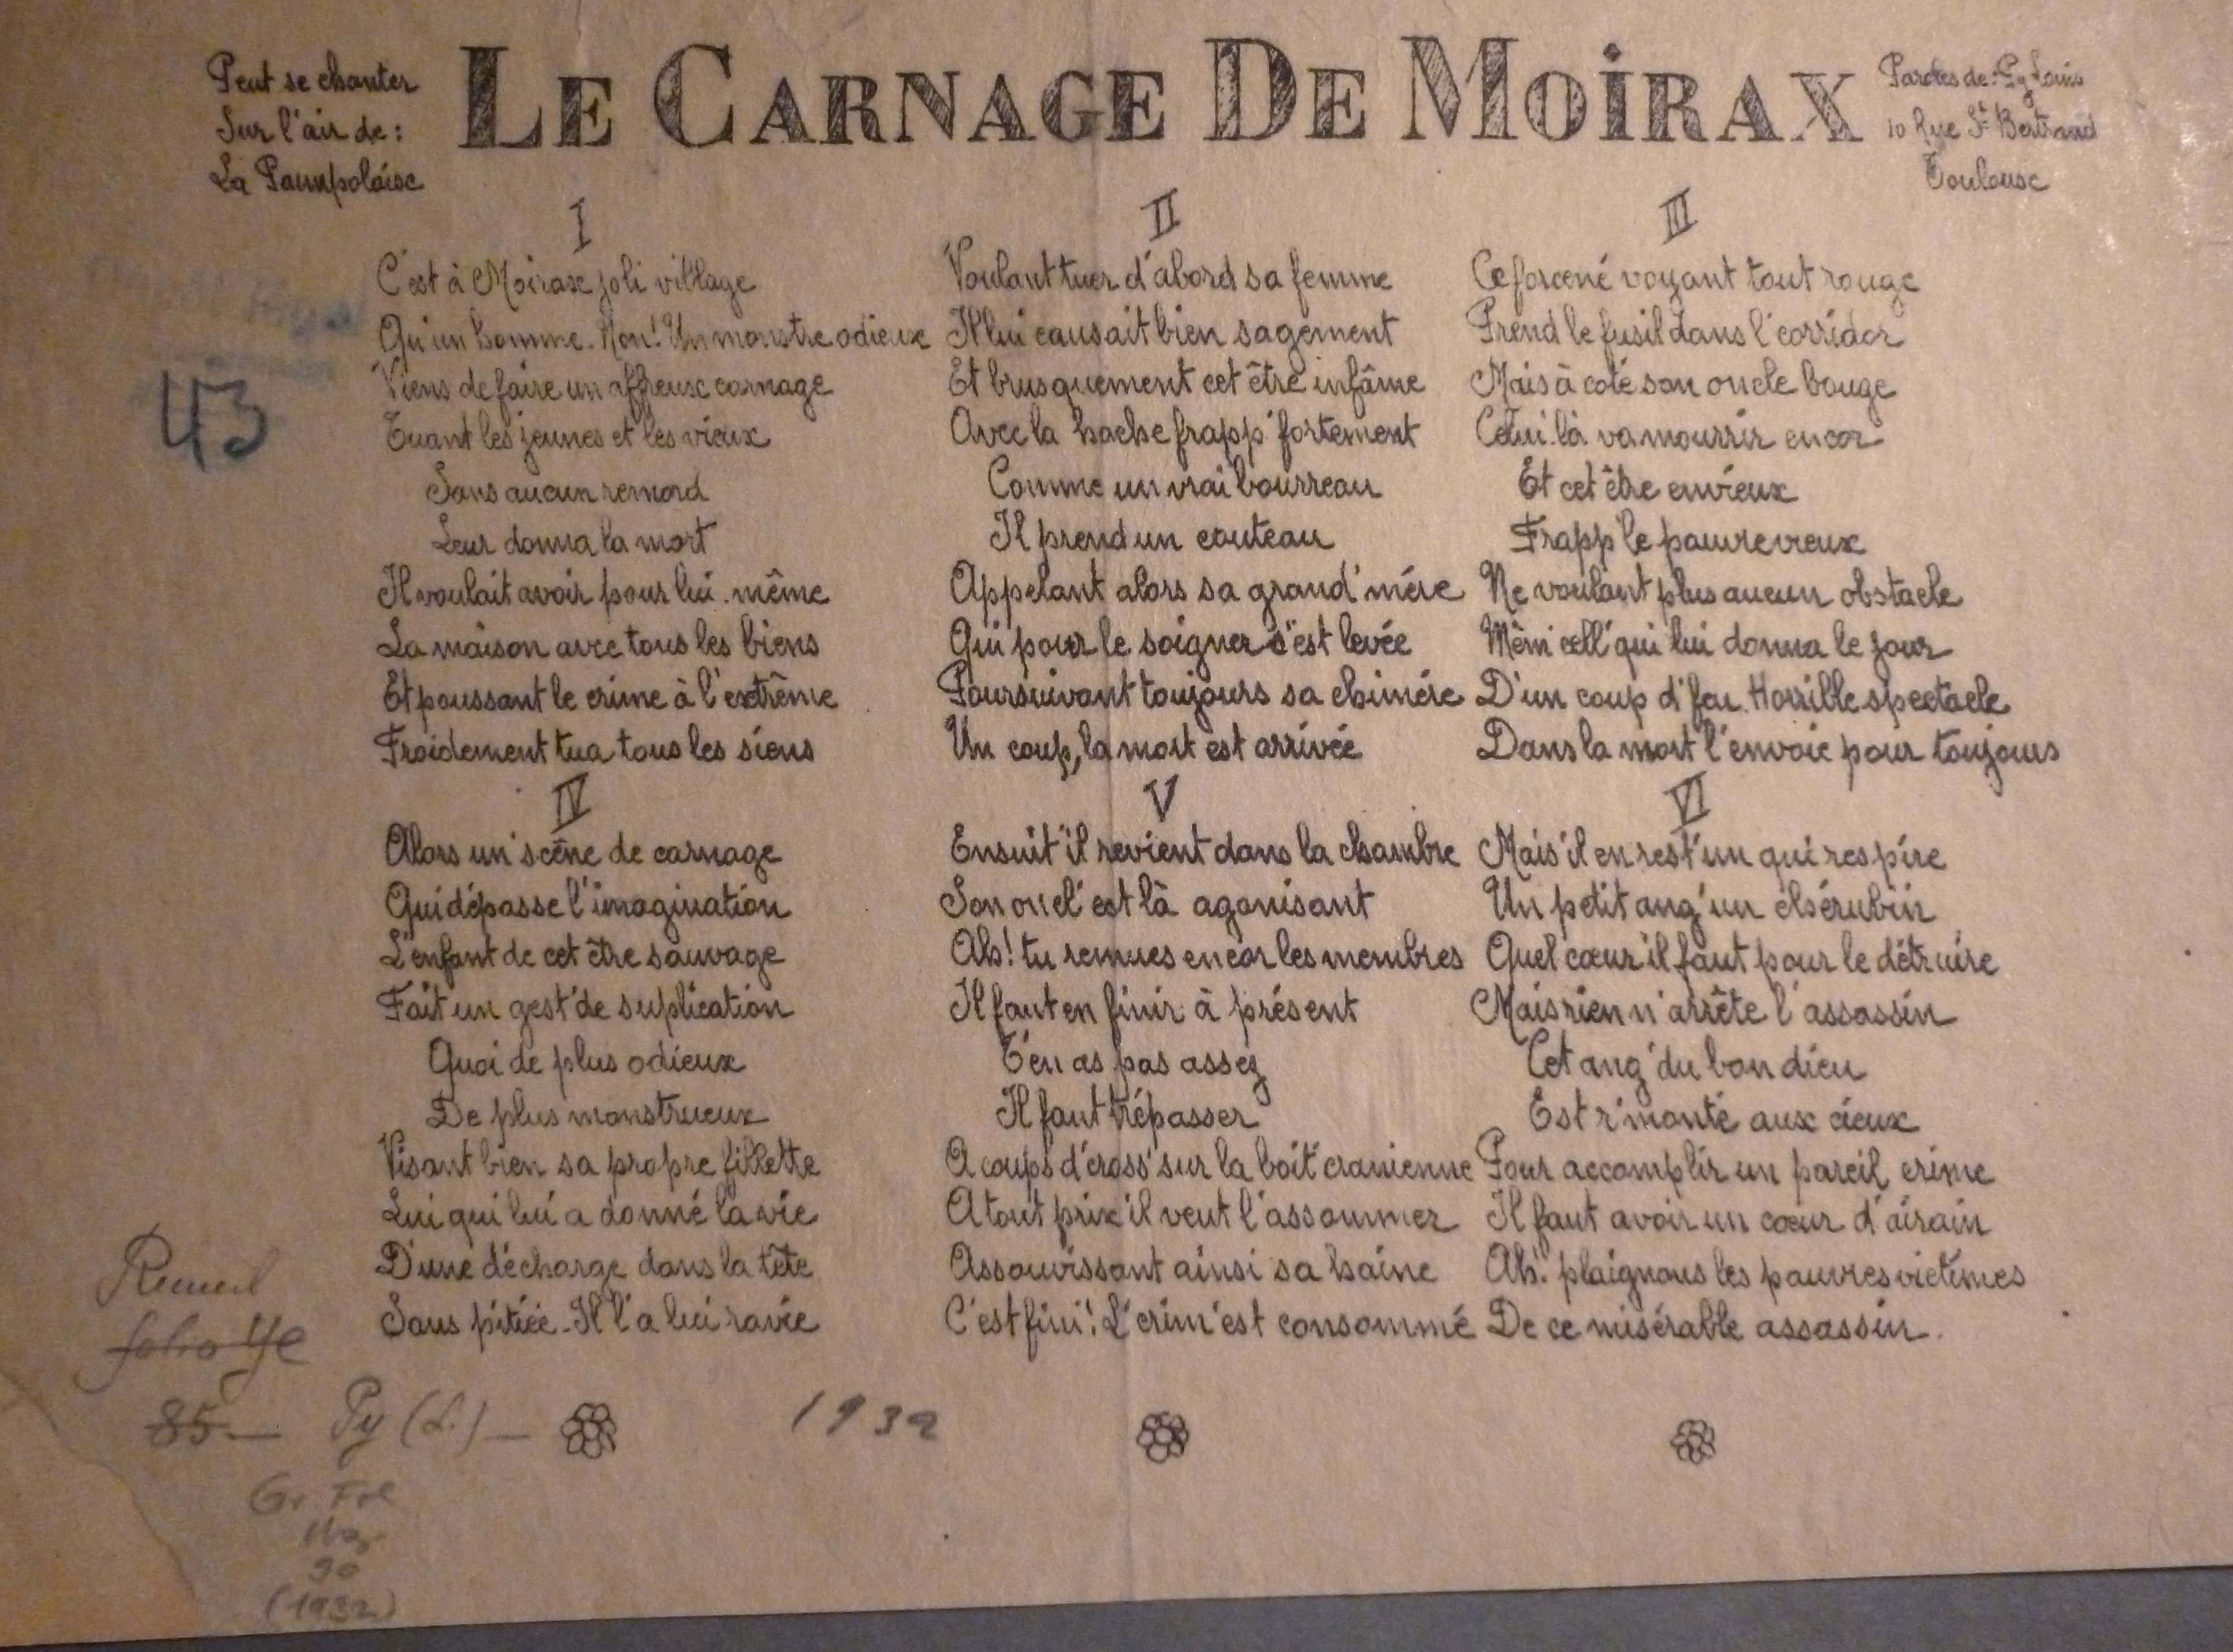 Peut se chanter
Sur l'air de :
La Paimpolaise
LE CARNAGE DE MOIRAX
Paroles de : Py Louis
10 Rue St Bertrand
Toulouse
43
I
C'est à Moirax joli village
Qu'un homme. Non! Un monstre odieux
Viens de faire un affreux carnage
Tuant les jeunes et les vieux
Sans aucun remord
Leur donna la mort
Il voulait avoir pour lui-même
La maison avec tous les biens
Et poussant le crime à l'extrême
Froidement tua tous les siens
II
Voulant tuer d'abord sa femme
Il lui causait bien sagement
Et brusquement cet être infâme
Avec la hache frapp' fortement
Comme un vrai bourreau
Il prend un couteau
Appelant alors sa grand'mére
Qui pour le soigner s'est levée
Poursuivant toujours sa chimére
Un coup, la mort est arrivée
III
Ce forcené voyant tout rouge
Prend le fusil dans l'corridor
Mais à coté son oncle bouge
Celui-là va mourrir encor
Et cet être envieux
Frapp' le pauvre vieux
Ne voulant plus aucun obstacle
Mêm' cell' qui lui donna le jour
D'un coup d'feu. Horrible spectacle
Dans la mort l'envoie pour toujours
IV
Alors un' scène de carnage
Qui dépasse l'imagination
L'enfant de cet être sauvage
Fait un gest' de suplication
Quoi de plus odieux
De plus monstrueux
Visant bien sa propre fillette
Lui qui lui a donné la vie
D'une décharge dans la tête
Sans pitiée. Il l'a lui ravie
V
Ensuit' il revient dans la chambre
Son oncl' est là agonisant
Ah! tu remues encor les membres
Il faut en finir à présent
T'en as pas assez
Il faut trépasser
A coups d'cross' sur la boit' cranienne
A tout prix il veut l'assommer
Assouvissant ainsi sa haine
C'est fini! L'crim' est consommé
VI
Mais il en rest' un qui respire
Un petit ang' un chérubin
Quel cœur il faut pour le détruire
Mais rien n'arrête l'assassin
Cet ang' du bon dieu
Est r'monté aux cieux
Pour accomplir un pareil crime
Il faut avoir un cœur d'airain
Ah! plaignons les pauvres victimes
De ce misérable assassin.
Recueil
folio Ye
85
Py (L.) —
1932
Gr Fol
90
(1932)